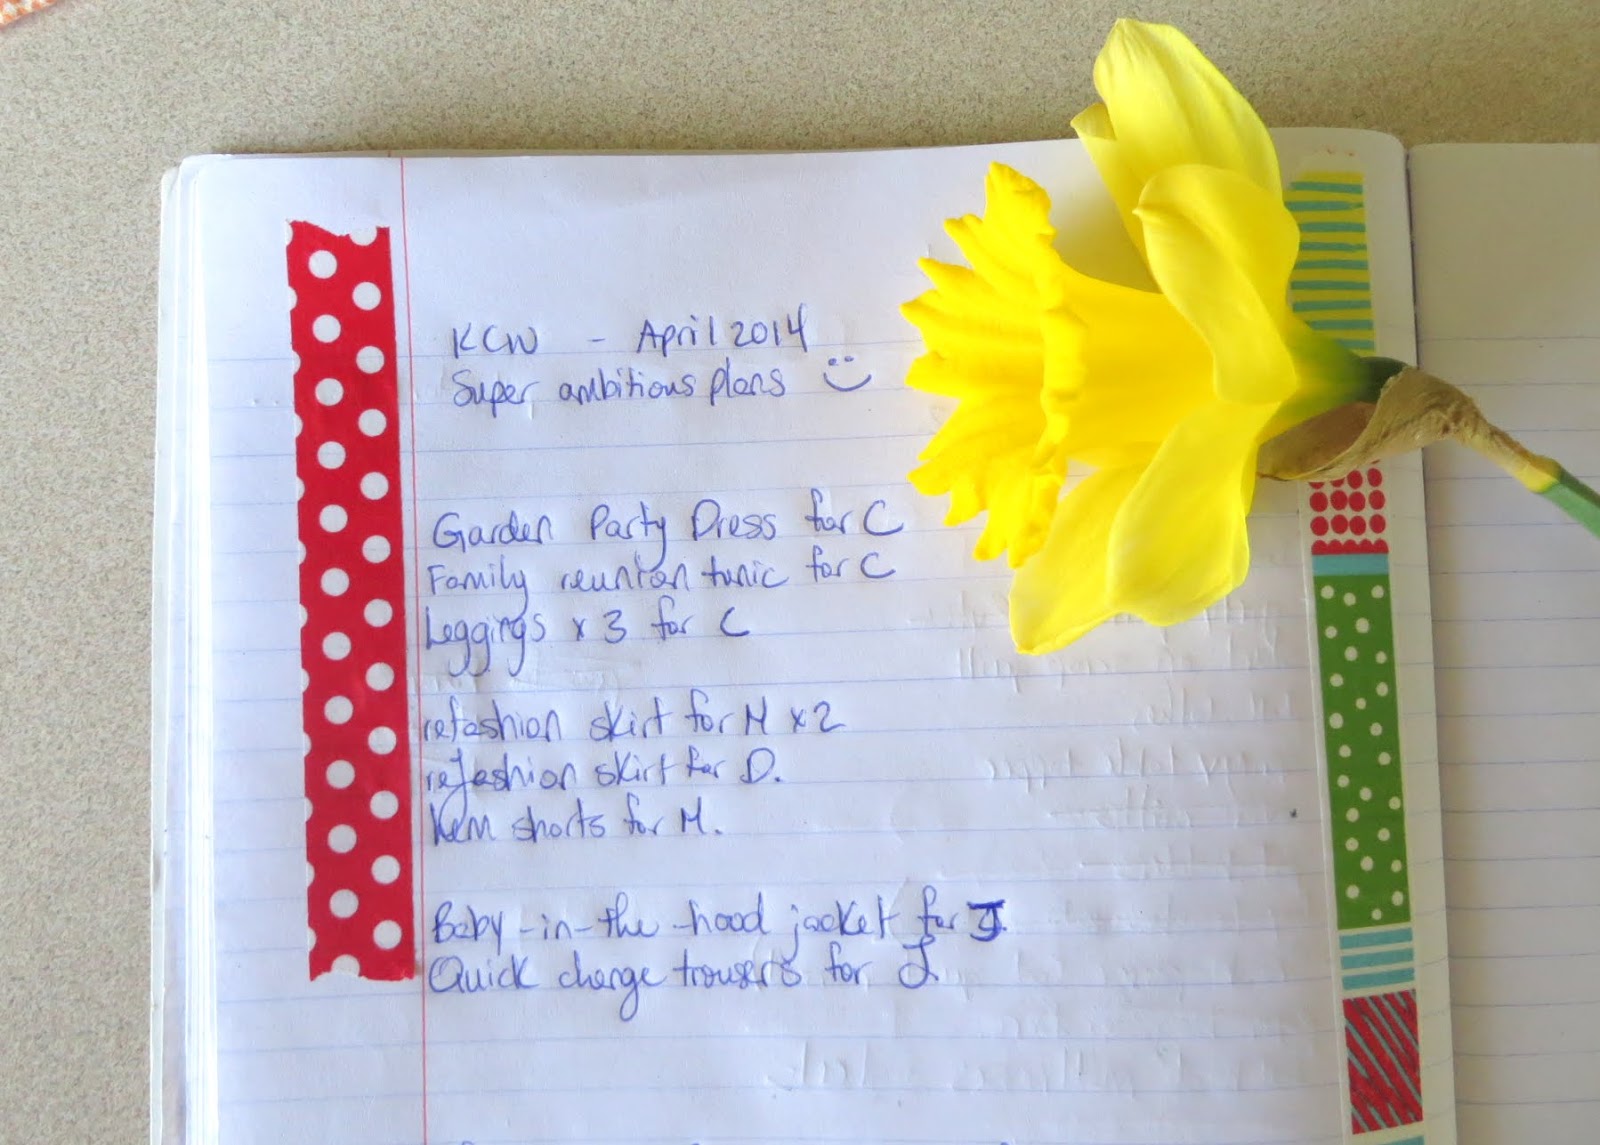 KCW - April 2014
Super ambitious plans
Garden Party Dress for C
Family reunion tunic for C
Leggings x 3 for C
refashion skirt for M x 2
refashion skirt for D.
shorts for M.
Baby-in-the-hood jacket for J.
Quick change trousers for J.